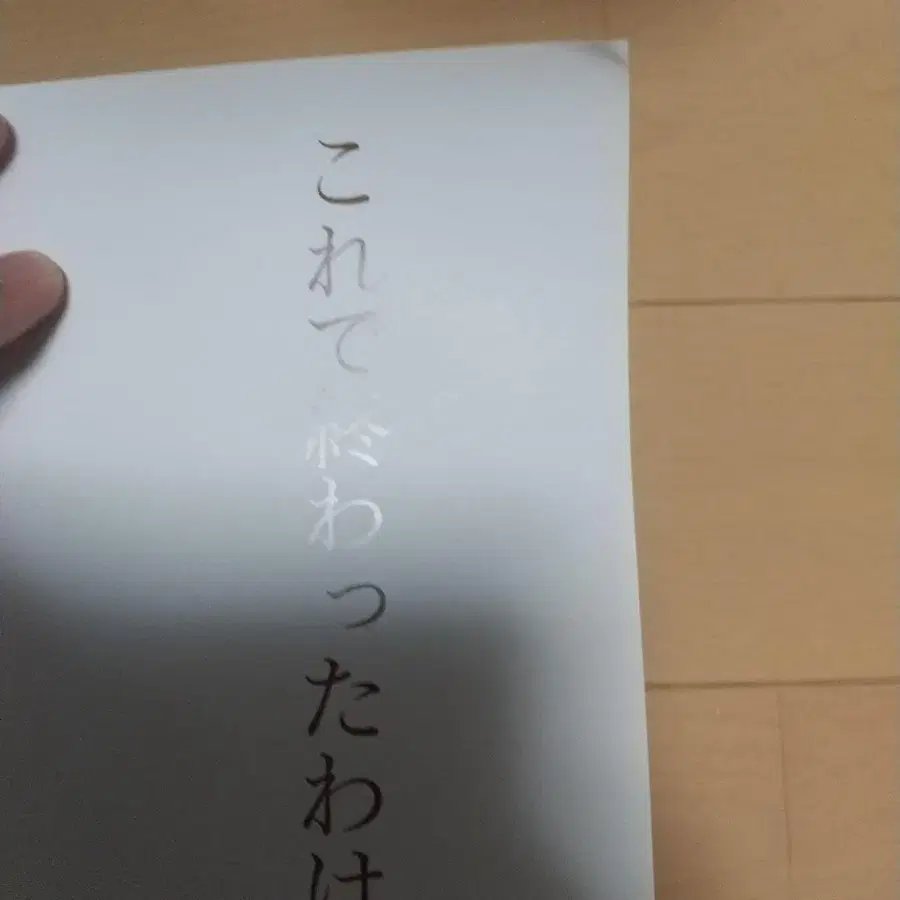 これで終わったわけ